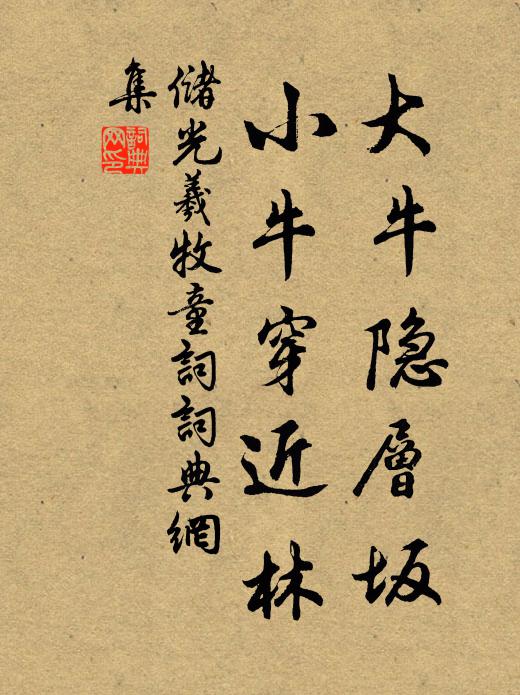 大牛隐層坂
小牛穿近林
儲光羲牧童詞詞典網
集
詞典
网印